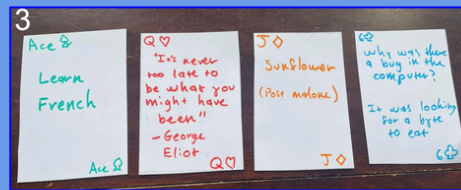 3
Ace ♧
Learn
French
Ace ♧
Q ♡
"It's never
too late to
be what you
might have
been"
- George
Eliot
Q ♡
J ◇
Sunflower
(Post malone)
J ◇
6 ♧
Why was there
a bug in the
computer?
It was looking
for a byte
to eat
6 ♧